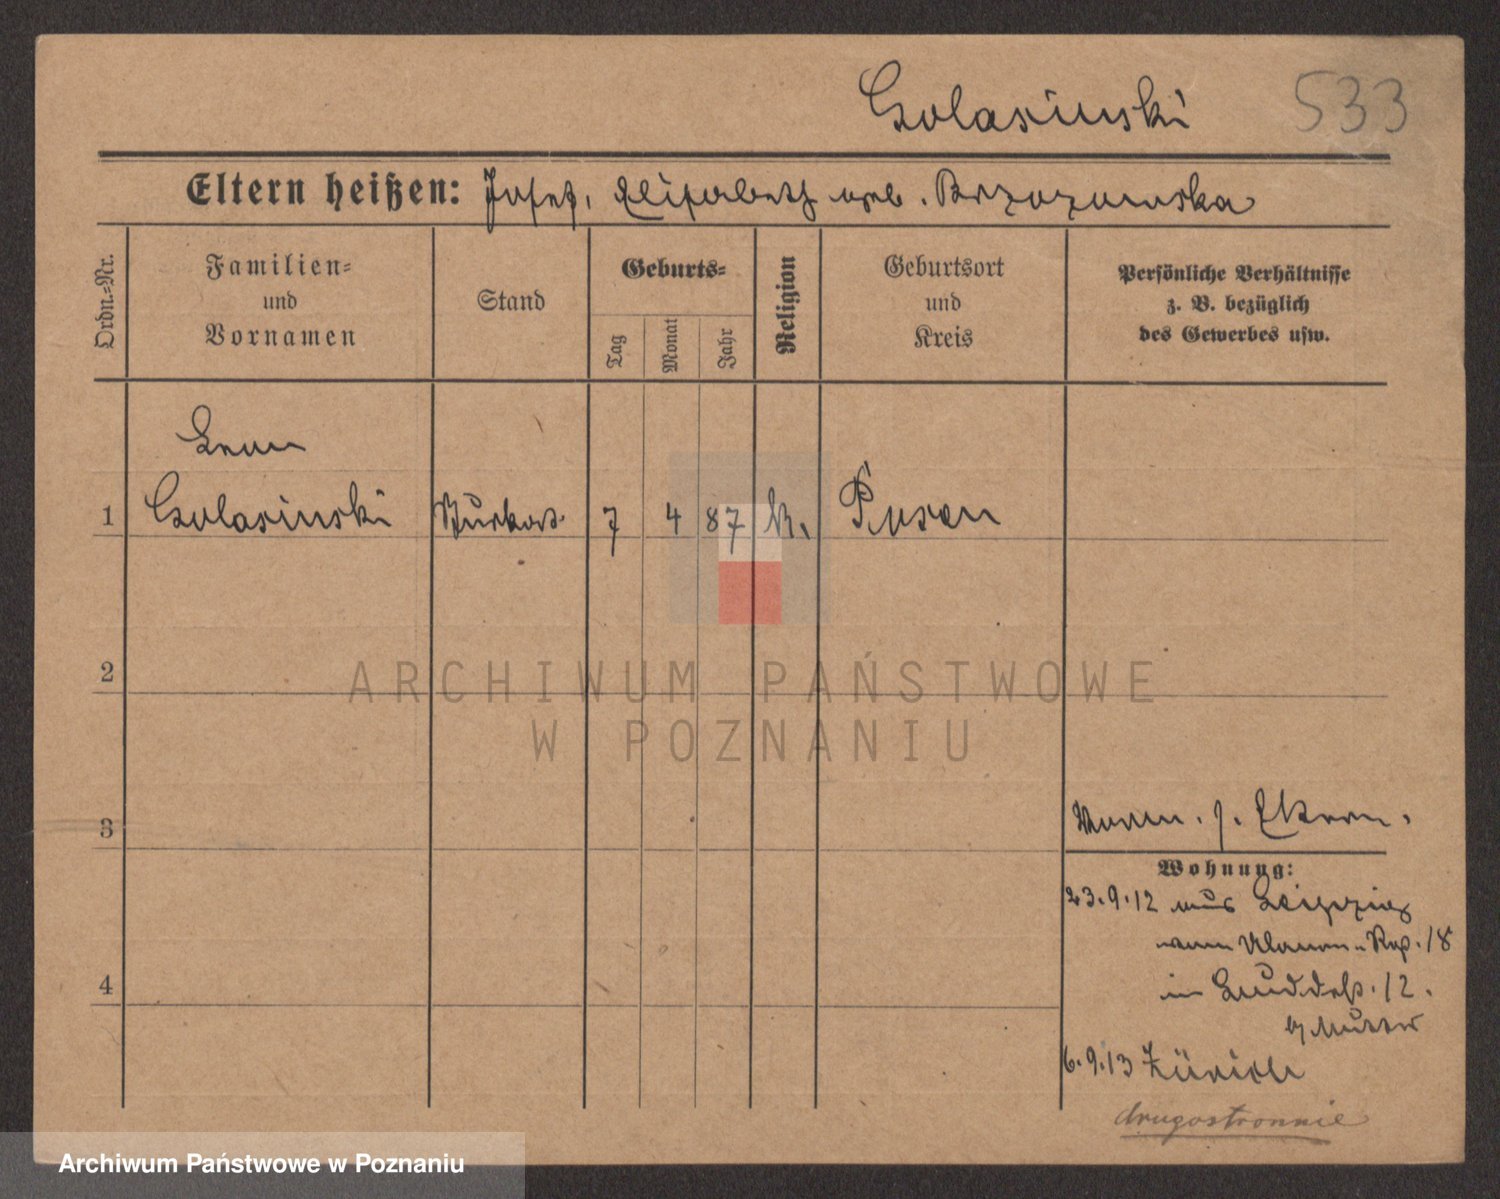 Golasinski 533
Eltern heißen: Josef, Elisabeth geb. Brzozowska
Ordn.=Nr.
Familien=
und
Vornamen
Stand
Geburts=
Tag
Monat
Jahr
Religion
Geburtsort
und
Kreis
Persönliche Verhältnisse
z. B. bezüglich
des Gewerbes usw.
Leon
1 Golasinski 7 4 87 k. Posen
2
ARCHIWUM PAŃSTWOWE
W POZNANIU
3
Wohnung:
23.9.12 aus Leipzig
vom Ulanen-Reg. 18
4
in 12.
b/ Mutter
6.9.13 Zürich
drugostronnie
Archiwum Państwowe w Poznaniu